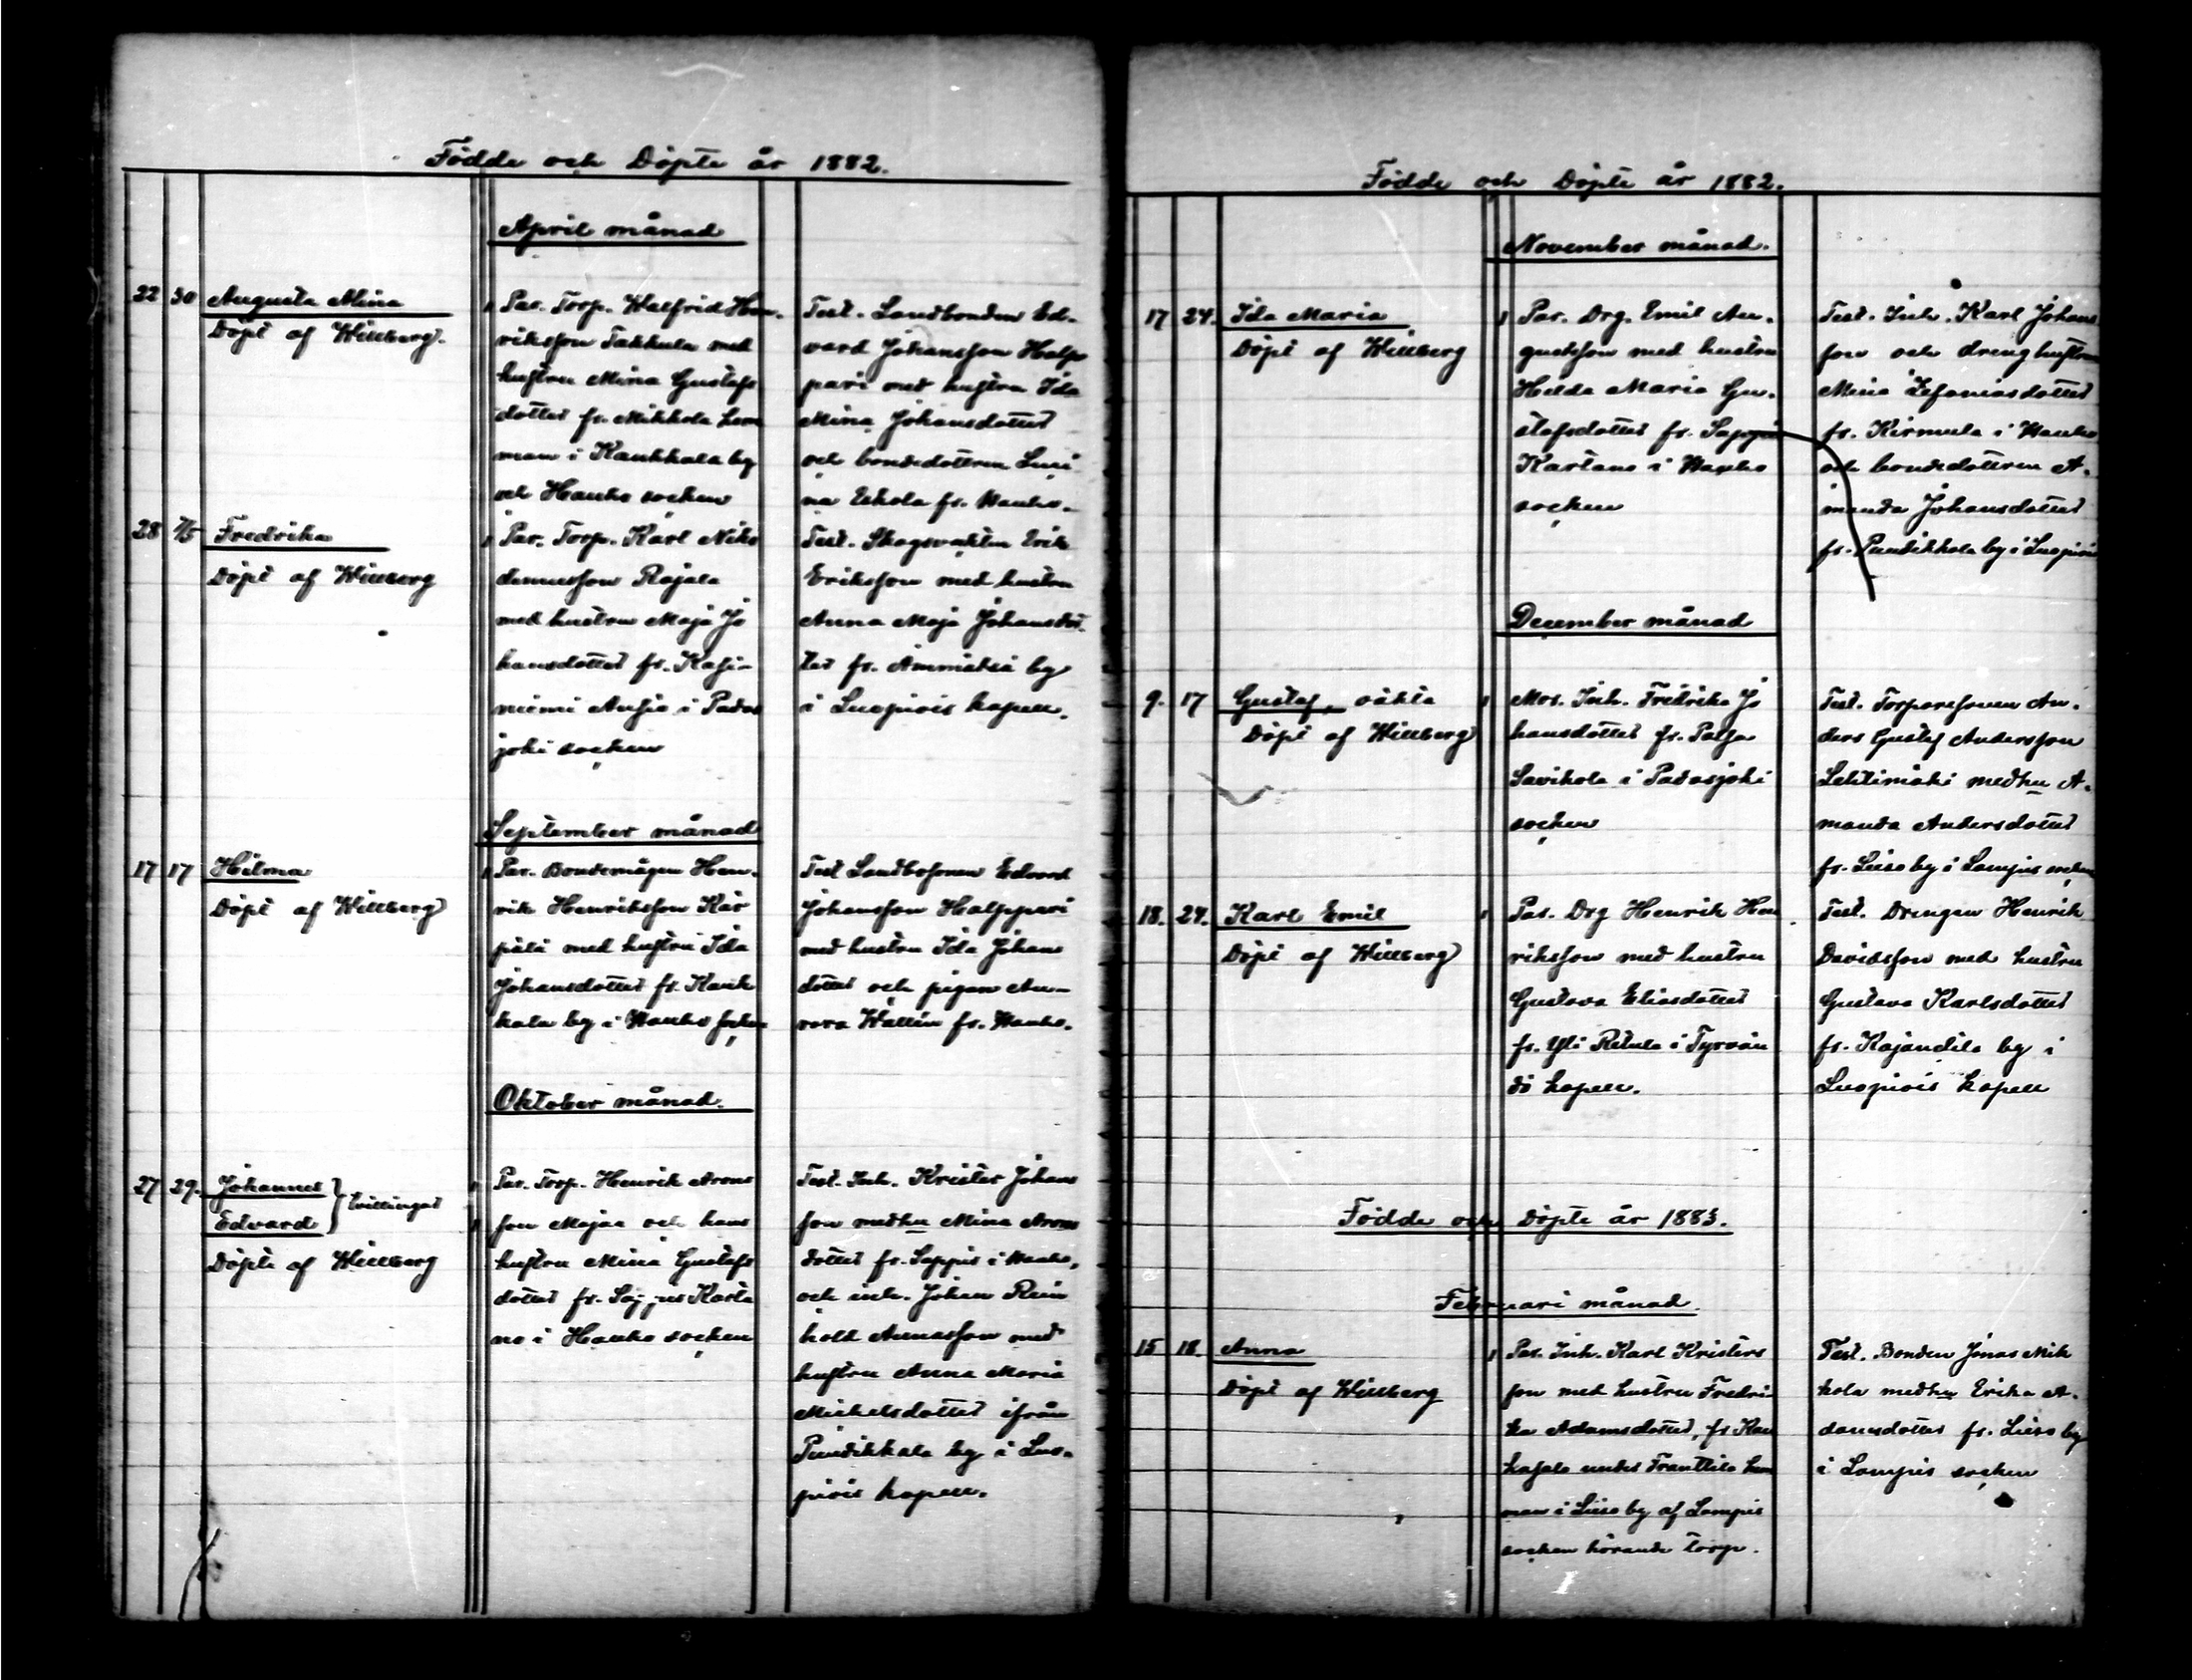 Födde och Döpte år 1882.
April månad
22 30 Augusta Mina
Döpt af Willberg.
Par. Torp. Walfrid Hen-
riksson Takkula med
hustru Mina Gustafs
dotter fr. Mikkola hem
man i Kaukkala by
och Hauho socken
Test. Landbonden Ed-
vard Johansson Halp
pari med hustru Ida
Mina Johansdotter
och bondedottren
na Eskola fr. Hauho.
28 7/5 Fredrika
Döpt af Willberg
Par. Torp. Karl Niko
demusson Rajala
med hustru Maja Jo
hansdotter fr. Kasi-
niemi Ansio i Padas
joki socken
Test. Skogsvakten Erik
Eriksson med hustru
Anna Maja Johansdot-
ter fr. by
i Luopiois kapell.
September månad
17 17 Hilma
Döpt af Willberg
Par. Bondemågen Hen-
rik Henriksson Kär
pili med hustru Ida
Johansdotter fr. Kauk
kala by i Hauho socken
Test Landbosonen Edvard
Johansson Halppari
med hustru Ida Johans
dotter och pigan Au-
rora Wallin fr. Hauho.
Oktober månad.
27 29. Johannes
Edvard } tvillingar
Döpte af Willberg
Par. Torp. Henrik Arons
son Majaa och hans
hustru Mina Gustafs
dotter fr. Sappis Karta
no i Hauho socken
Test. Inh. Krister Johans
son med hu Mina Arons
dotter fr. Sappis i Hauho,
och inh. Johan Rein
hold med
hustru Anna Maria
Michelsdotter ifrån
Puutikkala by i Luo-
piois kapell.
Födde och Döpte år 1882.
November månad.
17 24. Ida Maria
Döpt af Willberg
Par. Drg. Emil Au-
gustsson med hustru
Hilda Maria Gu-
stafsdotter fr. Sappis
Kartano i Hauho
socken
Test. Inh. Karl Johans
son och drenghustrun
Mina Zefaniasdotter
fr. Kirmula i Hauho
och bondedottren A-
manda Johansdotter
fr. Puutikkala by i Luopiois
December månad
9. 17 Gustaf, oäkta
Döpt af Willberg
Mor. Inh. Fredrika Jo
hansdotter fr.
Savikola i Padasjoki
socken
Test. Torparesonen An-
ders Gustaf Andersson
Lehtimäki med hu A-
manda Andersdotter
fr. Lieso by i Lampis socken
18. 24. Karl Emil
Döpt af Willberg
Par. Drg Henrik Hen
riksson med hustru
Gustava Eliasdotter
fr. Yli Retula i Tyrvän
tö kapell.
Test. Drengen Henrik
Davidsson med hustru
Gustava Karlsdotter
fr. Kajandila by i
Luopiois kapell
Födde och Döpte år 1883.
Februari månad.
15 18. Anna
Döpt af Willberg
Par. Inh. Karl Kristers
son med hustru Fredri-
ka Adamsdotter, fr.
under Franttila hem
man i Lieso by af Lampis
socken hörande torp.
Test. Bonden Jonas Mik
kola med hu Erika A-
damsdotter fr. Lieso by
i Lampis socken